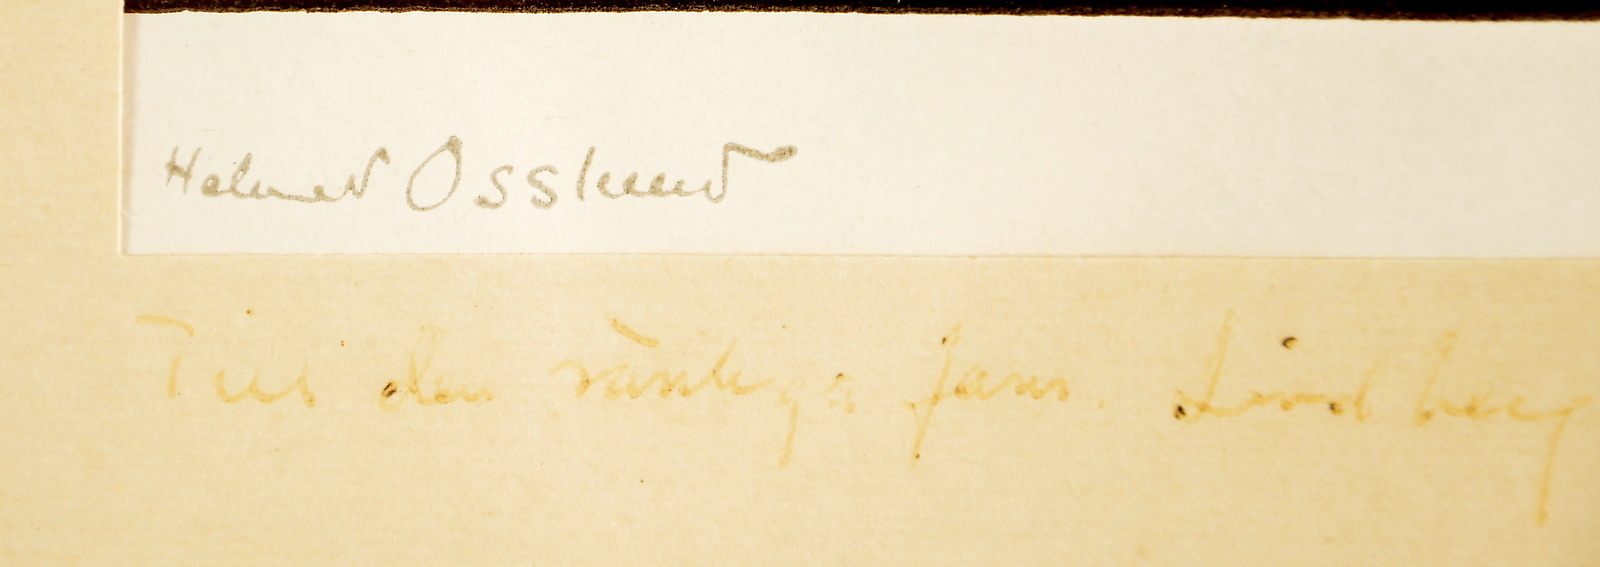 Helmer Osslund
Till den vänliga fam. Lindberg